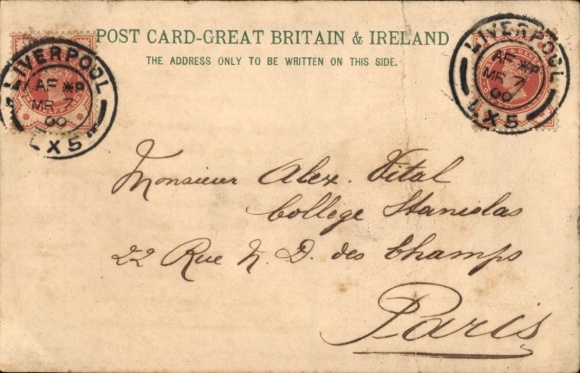 POST CARD-GREAT BRITAIN & IRELAND
THE ADDRESS ONLY TO BE WRITTEN ON THIS SIDE.
LIVERPOOL
AF *P
MR 7
00
LX5
LIVERPOOL
AF *P
MR 7
00
LX5
Monsieur Alex. Vital
College Stanislas
22 Rue N. D. des Champs
Paris